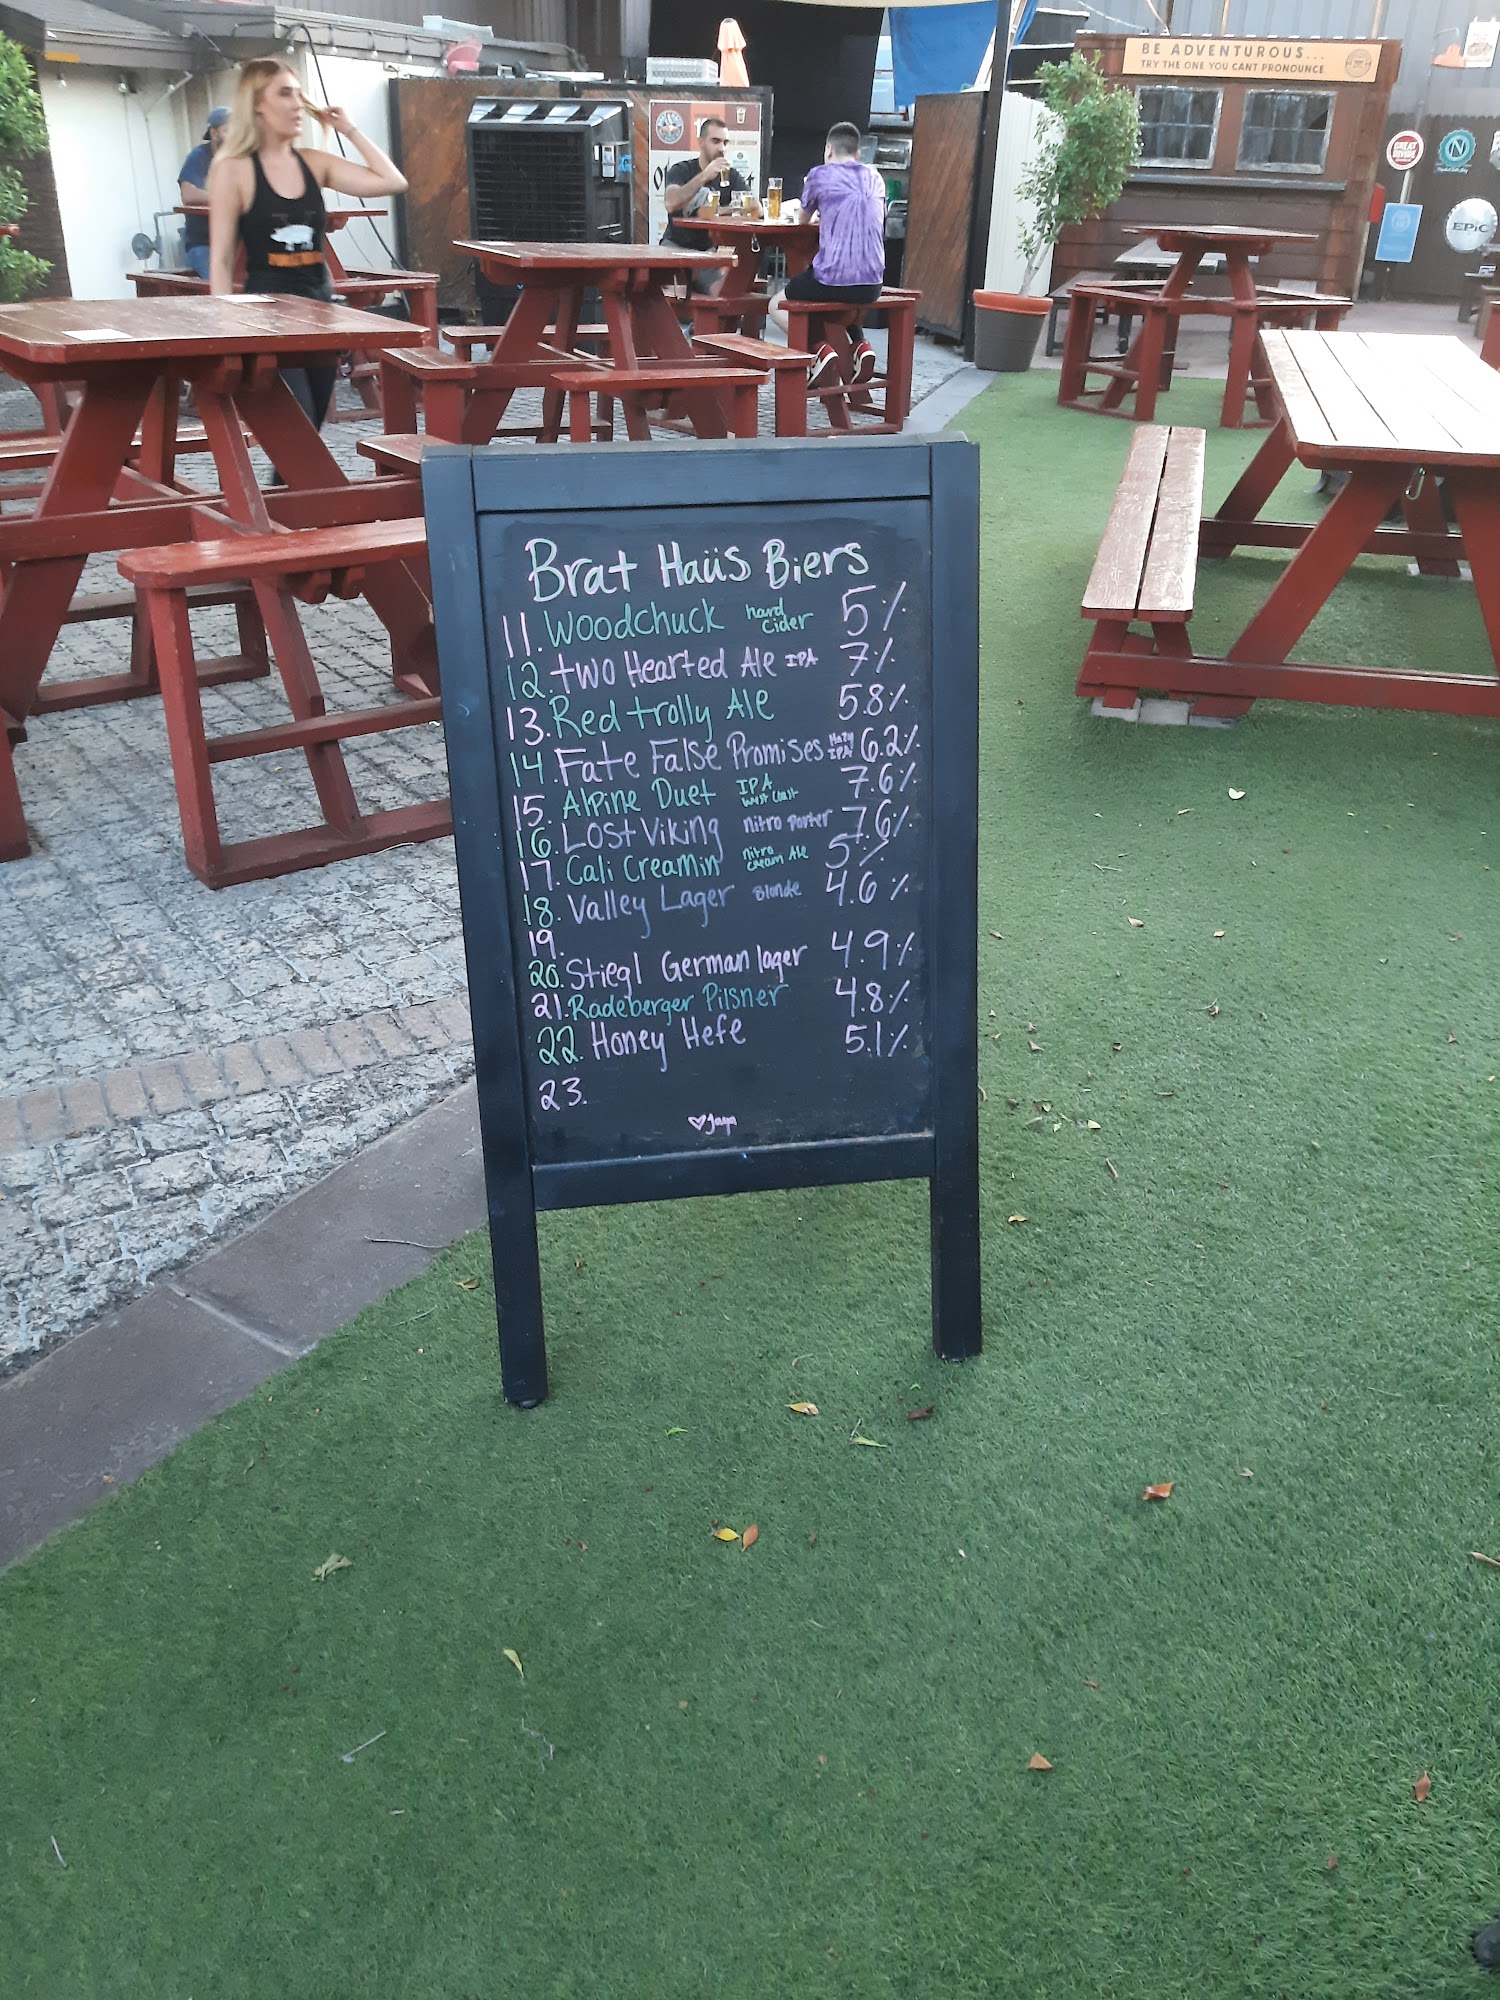 BE ADVENTUROUS...
TRY THE ONE YOU CANT PRONOUNCE
GREAT DIVIDE
N
EPIC
Brat Haüs Biers
11. Woodchuck hard cider 5%
12. Two Hearted Ale IPA 7%
13. Red trolly Ale 5.8%
14. Fate False Promises Hazy IPA 6.2%
15. Alpine Duet IPA West Coast 7.6%
16. Lost Viking nitro porter 7.6%
17. Cali Creamin nitro cream Ale 5%
18. Valley Lager Blonde 4.6%
19.
20. Stiegl German lager 4.9%
21. Radeberger Pilsner 4.8%
22. Honey Hefe 5.1%
23.
♡ Jaya